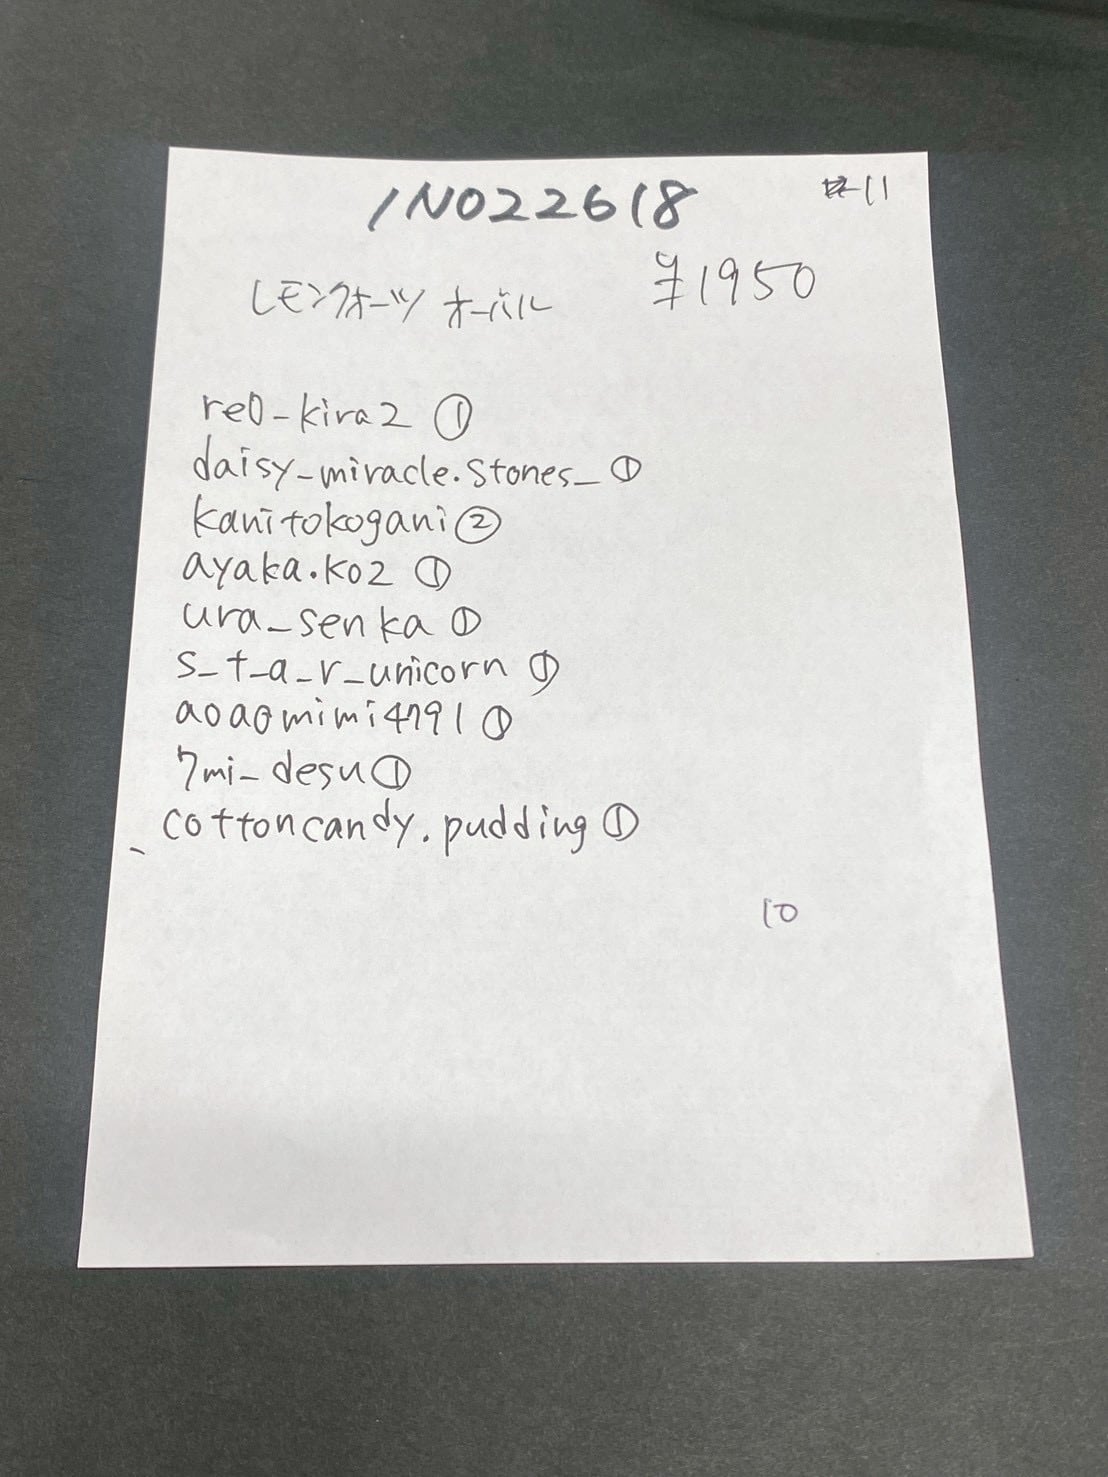 INO22618
11
レモンクォーツ オーバル ¥1950
re0_kira2 ①
daisy_miracle.stones_ ①
kanitokogani ②
ayaka.ko2 ①
ura_senka ①
s_t_a_r_unicorn ①
aoaomimi4791 ①
7mi_desu ①
cottoncandy.pudding ①
10